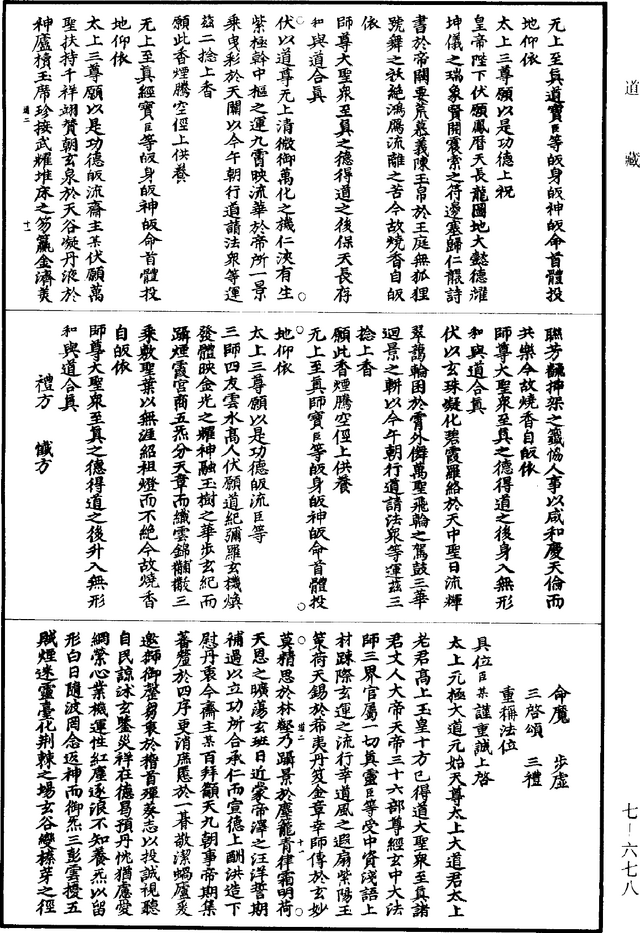 道藏
无上至真道寶臣等皈身皈神皈命首體投
地仰依
太上三尊願以是功德上祝
皇帝陛下伏願鳳曆天長龍圖地大懿德濯
坤儀之瑞象賢開震索之符邊塞歸仁服詩
書於帝闕要荒慕義陳玉帛於王庭無狐狸
號舞之袄絶鴻鴈流離之苦今故燒香自皈
依
師尊大聖衆至真之德得道之後保天長存
和與道合真
伏以道尊无上清微御萬化之機仁浹有生
紫極幹中樞之運九霄映流華於帝所一景
乘曳彩於天關以今午朝行道請法衆等運
茲二捻上香
願此香煙騰空徑上供養
无上至真經寶臣等皈身皈神皈命首體投
地仰依
太上三尊願以是功德皈流齋主某伏願萬
聖扶持千祥翊贊朝玄泉於天谷凝丹液於
神廬檟玉席珍接武耀堆床之笏籯金濟美
道二
十
聮芳 插架之籤協人事以咸和慶天倫而
共樂今故燒香自皈依
師尊大聖衆至真之德得道之後身入無形
和與道合真
伏以玄珠凝化碧霞羅絡於天中聖日流輝
翠藹輪囷於霄外儛萬聖飛輪之駕鼓三華
迴景之軿以今午朝行道請法衆等運茲三
捻上香
願此香煙騰空徑上供養
无上至真師寶臣等皈身皈神皈命首體投
地仰依
太上三尊願以是功德皈流臣等
三師四友雲水高人伏願道紀彌羅玄機煥
發體映金光之耀神融玉樹之華步玄紀而
躡煙霞宮商五炁分天章而纖雲錦黼黻三
乘敷聖葉以無涯紹祖燈而不絶今故燒香
自皈依
師尊大聖衆至真之德得道之後升入無形
和與道合真
禮方 懺方
命魔 步虛
三啓頌 三禮
重稱法位
具位臣某謹重誠上啓
太上元極大道元始天尊太上大道君太上
老君高上玉皇十方已得道大聖衆至真諸
君丈人大帝天帝三十六部尊經玄中大法
師三界官屬一切真靈臣等受中資淺語上
材踈際玄運之流行幸道風之遐扇紫陽玉
策荷天錫於希夷丹笈金章幸師傳於玄妙
莫精思於林壑乃躡景於塵籠青律霜明荷
道二
十一
天恩之曠蕩玄班日近蒙帝澤之汪洋誓期
補過以立功所合承仁而宣德上酬洪造下
慰丹衷今齋主某百拜籲天九朝事帝期集
蕃釐於四序更消庶慝於一朞敬潔蝸廬爰
邀師御罄芻衷於稽首殫葵志以投誠視聽
自民諒沭玄鑒災祥在德曷預丹忱猶慮愛
網縈心業機運性紅塵逐浪不知養炁以留
形白日隨波罔念返神而御炁三彭雲擾五
賊煙迷靈臺化荆棘之場玄谷變榛芽之徑
七—六七八